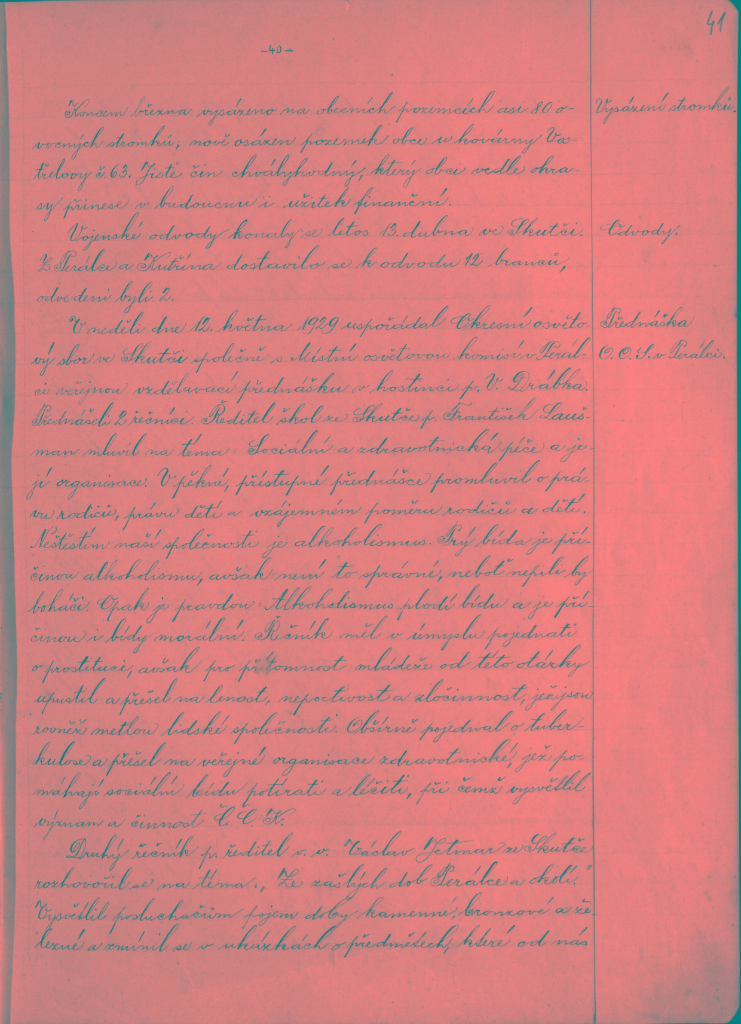 41
-40-
Koncem března vysázeno na obecních pozemcích asi 80 o- Vysázení stromků.
vocných stromků, nově osázen pozemek obce u kovárny Va-
třelovy č. 63. Jistě čin chvályhodný, který obci vedle okra-
sy přinese v budoucnu i užitek finanční.
Vojenské odvody konaly se letos 13. dubna ve Skutči. Odvody.
Z Perálce a Kutřína dostavilo se k odvodu 12 branců,
odvedeni byli 2.
V neděli dne 12. května 1929 uspořádal Okresní osvěto- Přednáška
vý sbor ve Skutči společně s Místní osvětovou komisí v Perál- O. O. S. v Perálci.
ci veřejnou vzdělávací přednášku v hostinci p. V. Drábka.
Přednášeli 2 řečníci. Ředitel škol ze Skutče p. František Lauš-
man mluvil na téma: Sociální a zdravotnická péče a je-
jí organisace. V pěkné, přístupné přednášce promluvil o prá-
vu rodičů, právu dětí a vzájemném poměru rodičů a dětí.
Neštěstím naší společnosti je alkoholismus. Prý bída je pří-
činou alkoholismu, avšak není to správné, neboť nepili by
boháči. Opak je pravdou: Alkoholismus plodí bídu a je pří-
činou i bídy morální. Řečník měl v úmyslu pojednati
o prostituci, avšak pro přítomnost mládeže od této otázky
upustil a přešel na lenost, nepoctivost a zločinnost, jež jsou
rovněž metlou lidské společnosti. Obšírně pojednal o tuber-
kulose a přešel na veřejné organisace zdravotnické, jež po-
máhají sociální bídu potírati a léčiti, při čemž vysvětlil
význam a činnost Č. Č. K.
Druhý řečník p. ředitel v. v. Václav Jetmar ze Skutče
rozhovořil se na téma: „Ze zašlých dob Perálce a okolí."
Vysvětlil posluchačům pojem doby kamenné, bronzové a že-
lezné a zmínil se v ukázkách o předmětech, které od nás